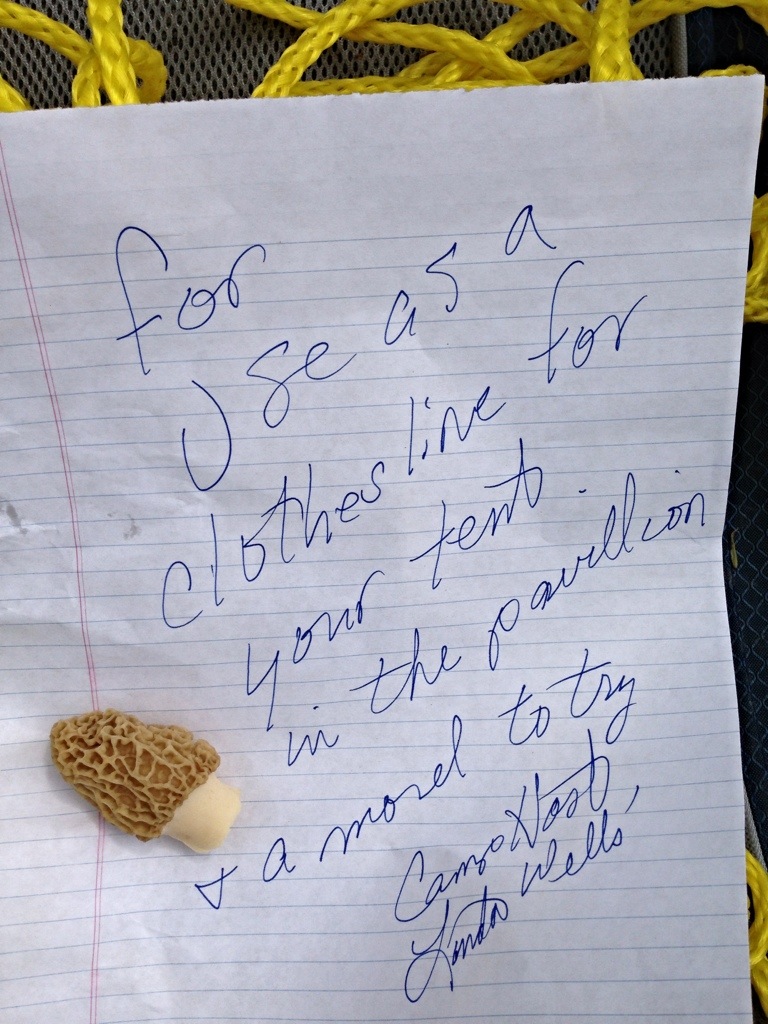 for
Use as a
clothes line for
your tent
in the pavillion
+ a morel to try
Camp Host,
Linda Wells